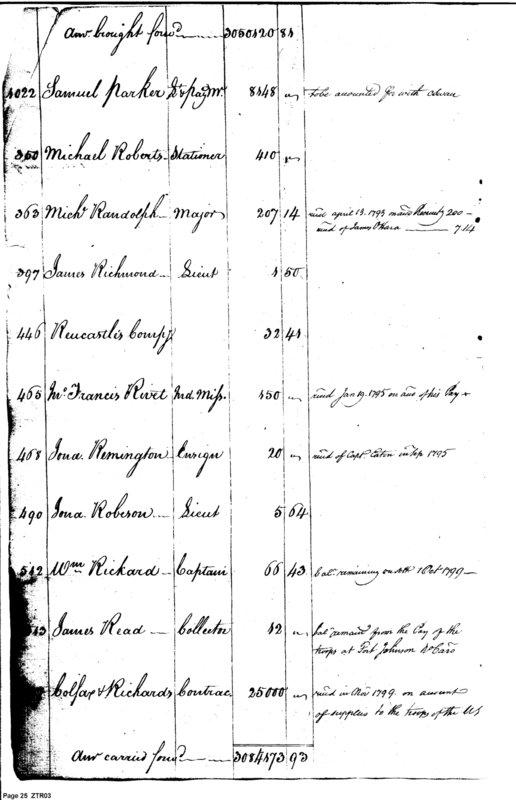 Amt brought forwd 3050120 81
1022 Samuel Parker Dy paymr 8148 " to be accounted for with
360 Michael Roberts Stationer 410 "
363 Michl Randolph Major 207 14 recd april 13. 1793 200 -
recd of James OHara 7.14
397 James Richmond Lieut 1 50
446 Compy 32 41
465 Jno Francis Rivet Ind. Miss. 150 " recd Jan 19. 1795 on acco of his Pay &
468 Jona Remington Ensign 20 " recd of Capt. Eaton in Sep 1795
490 Jona Robeson Lieut 5 64
512 Wm Rickard Captain 66 43 bal remaining on 1 Oct 1799
513 James Read Collector 12 " bal remaing from the Pay of the
troops at Fort Johnson No Caro
Colfax & Richards Contrac 25000 " recd in Nov 1799 on account
of supplies to the troops of the US
Amt carried forwd 3084173 93
Page 25 ZTR03